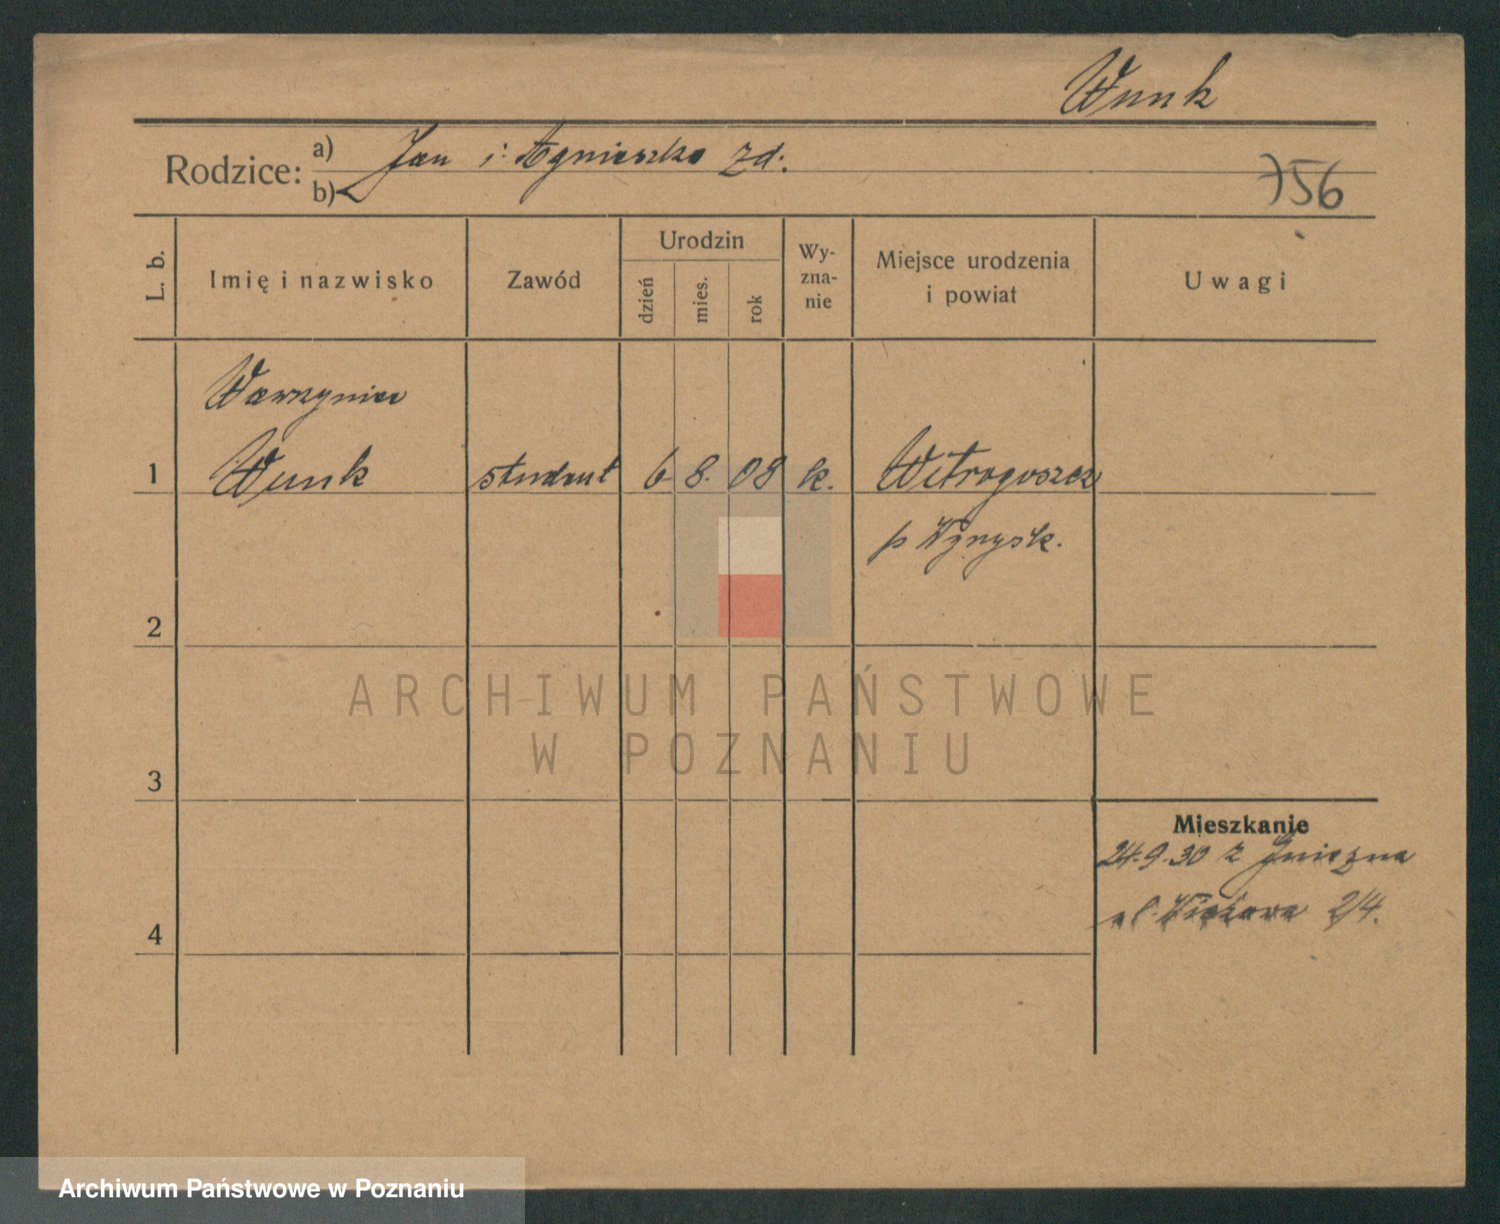 Wunk
Rodzice: a) Jan i Agnieszka zd.
b)
756
L. b. Imię i nazwisko Zawód Urodzin dzień mies. rok Wyznanie Miejsce urodzenia i powiat Uwagi
Wawrzyniec
1 Wunk student 6. 8. 08 k. Witrogoszcz
p Wyrzysk.
2
ARCHIWUM PAŃSTWOWE
W POZNANIU
3
Mieszkanie
24.9.30 z Gniezna
ul. 2/4.
4
Archiwum Państwowe w Poznaniu